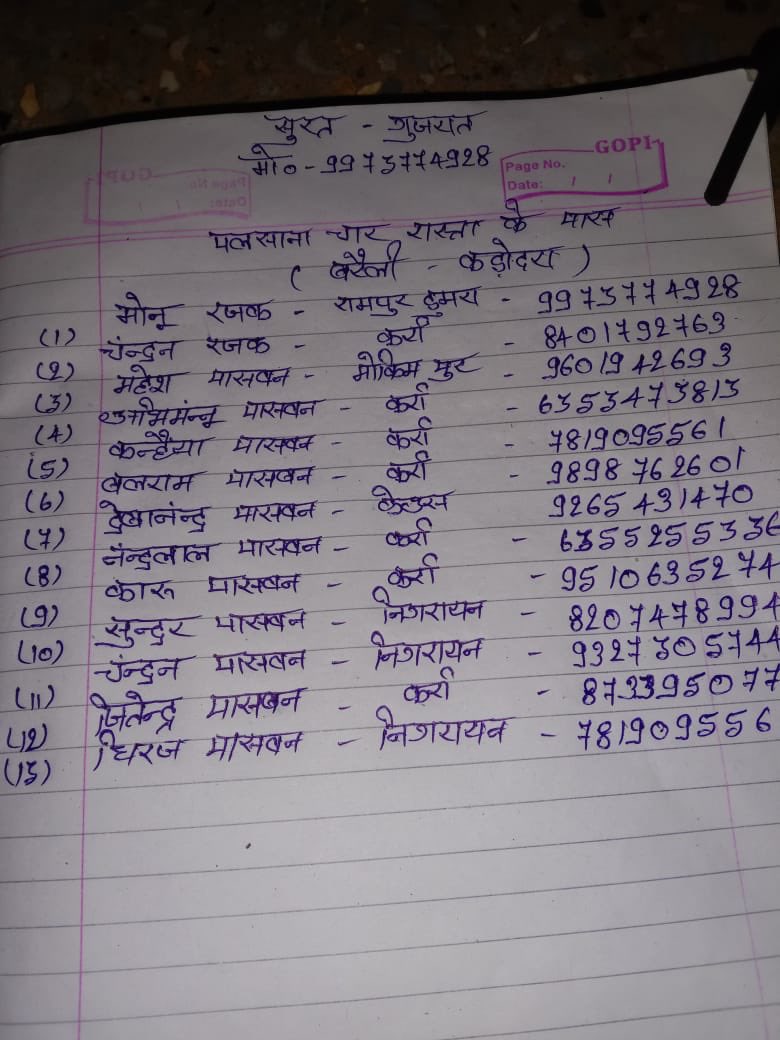 सुरत - गुजरात
मो० - 9973774928
GOPI
Page No.
Date: / /
पलसाना चार रास्ता के पास
( बरैली - कड़ोदरा )
(1) मोनू रजक - रामपुर डुमरा - 9973774928
(2) चंन्द्रन रजक - कर्रा - 8401792763
(3) महेश पासवन - मोकिम पुर - 9601942693
(4) अभिमंन्नू पासवन - कर्रा - 6353473813
(5) कन्हैया पासवन - कर्रा - 7819095561
(6) बलराम पासवन - कर्रा - 9898762601
(7) देवानंन्द्र पासवन - केउस 9265431470
(8) नंन्द्रलाल पासवन - कर्रा - 6355255336
(9) कारू पासवन - कर्रा - 9510635274
(10) सुन्द्रर पासवन - निगरायन - 8207478994
(11) चंन्द्रन पासवन - निगरायन - 9327305744
(12) जितेन्द्र पासवन - कर्रा - 873395077
(13) धिरज पासवन - निगरायन - 781909556